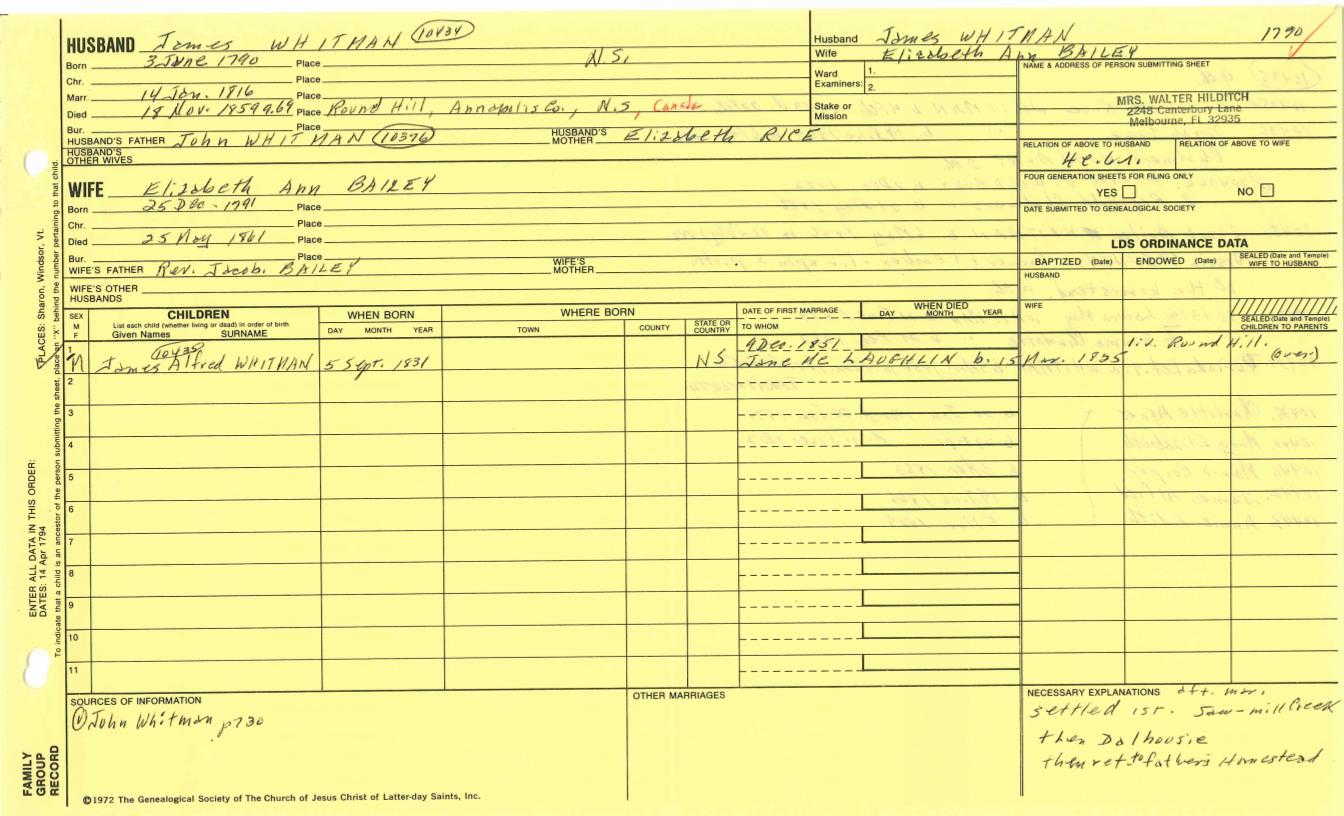 HUSBAND James WHITMAN (10434)
Born 3 June 1790 Place N.S.
Chr. Place
Marr. 14 Jan. 1816 Place
Died 18 Nov. 1859 a.69 Place Round Hill, Annapolis Co., N.S, Canada
Bur. Place
HUSBAND'S FATHER John WHITMAN (10376) HUSBAND'S MOTHER Elizabeth RICE
HUSBAND'S OTHER WIVES
WIFE Elizabeth Ann BAILEY
Born 25 Dec - 1791 Place
Chr. Place
Died 25 May 1861 Place
Bur. Place
WIFE'S FATHER Rev. Jacob. BAILEY WIFE'S MOTHER
WIFE'S OTHER HUSBANDS
Husband James WHITMAN 1790
Wife Elizabeth Ann BAILEY
Ward Examiners: 1. 2.
Stake or Mission
NAME & ADDRESS OF PERSON SUBMITTING SHEET
MRS. WALTER HILDITCH
2248 Canterbury Lane
Melbourne, FL 32935
RELATION OF ABOVE TO HUSBAND RELATION OF ABOVE TO WIFE
FOUR GENERATION SHEETS FOR FILING ONLY
YES NO
DATE SUBMITTED TO GENEALOGICAL SOCIETY
LDS ORDINANCE DATA
BAPTIZED (Date) ENDOWED (Date) SEALED (Date and Temple) WIFE TO HUSBAND
HUSBAND
WIFE
SEALED (Date and Temple) CHILDREN TO PARENTS
SEX M F
CHILDREN
List each child (whether living or dead) in order of birth
Given Names SURNAME
WHEN BORN
DAY MONTH YEAR
WHERE BORN
TOWN COUNTY STATE OR COUNTRY
DATE OF FIRST MARRIAGE
TO WHOM
WHEN DIED
DAY MONTH YEAR
1 M (10435) James Alfred WHITMAN 5 Sept. 1831 NS 9 Dec. 1851 liv. Round Hill.
Jane Mc LAUGHLIN b. 15 Mar. 1835 (over)
2
3
4
5
6
7
8
9
10
11
SOURCES OF INFORMATION
(V) John Whitman p730
OTHER MARRIAGES
NECESSARY EXPLANATIONS aft. mar.
settled 1st. Saw-mill Creek
then Dalhousie
then ret to father's Homestead
©1972 The Genealogical Society of The Church of Jesus Christ of Latter-day Saints, Inc.
FAMILY GROUP RECORD
ENTER ALL DATA IN THIS ORDER:
DATES: 14 Apr 1794
PLACES: Sharon, Windsor, Vt.
To indicate that a child is an ancestor of the person submitting the sheet, place an "X" behind the number pertaining to that child.